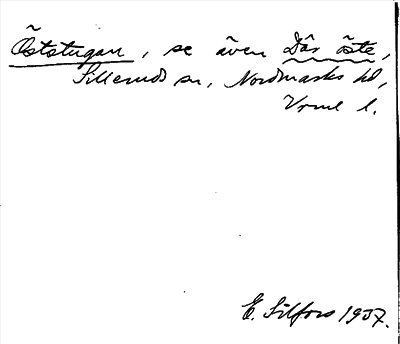 Öststugan, se även Där öste,
Sillerud sn, Nordmarks hd,
Vrml l.
E. Silfors 1937.